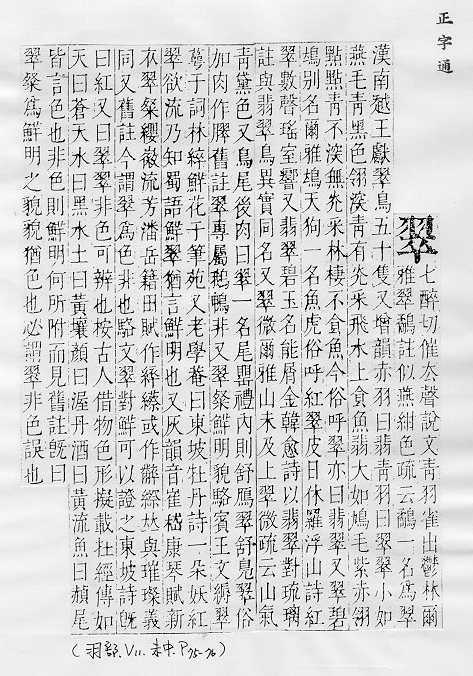 正字通
翠
七醉切催去聲說文青羽雀出鬱林爾
雅翠鷸註似燕紺色疏云鷸一名為翠
漢南越王獻翠鳥五十隻又增韻赤羽曰翡青羽曰翠翠小如
燕毛青黑色翎深青有光采飛水上食魚翡大如鳩毛紫赤翎
點點青不深無光采林棲不食魚今俗呼翠亦曰翡翠又翠碧
鴗別名爾雅鴗天狗一名魚虎俗呼紅翠皮日休羅浮山詩紅
翠數聲瑤室響又翡翠碧玉名能屑金韓愈詩以翡翠對琉璃
註與翡翠鳥異實同名又翠微爾雅山未及上翠微疏云山氣
青黛色又鳥尾後肉曰翠一名尾罌禮內則舒鴈翠舒鳧翠俗
如肉作膵舊註翠專屬鵝鴨非又翠粲鮮明貌駱賓王文縟翠
萼于詞林綷鮮花于筆苑又老學菴曰東坡牡丹詩一朵妖紅
翠欲流乃知蜀語鮮翠猶言鮮明也又灰韻音崔嵇康琴賦新
衣翠粲纓徽流芳潘岳籍田賦作綷縩或作綵𠀤與璀璨義
同又舊註今謂翠為色非也駱文翠對鮮可以證之東坡詩旣
曰紅又曰翠翠非色可辨也按古人借物色形擬載在經傳如
天曰蒼天水曰黑水土曰黃壤顏曰渥丹酒曰黃流魚曰赬尾
皆言色也非色則鮮明何所附而見舊註旣曰
翠粲為鮮明之貌貌猶色也必謂翠非色誤也
(羽部.V11.未中.P75-76)